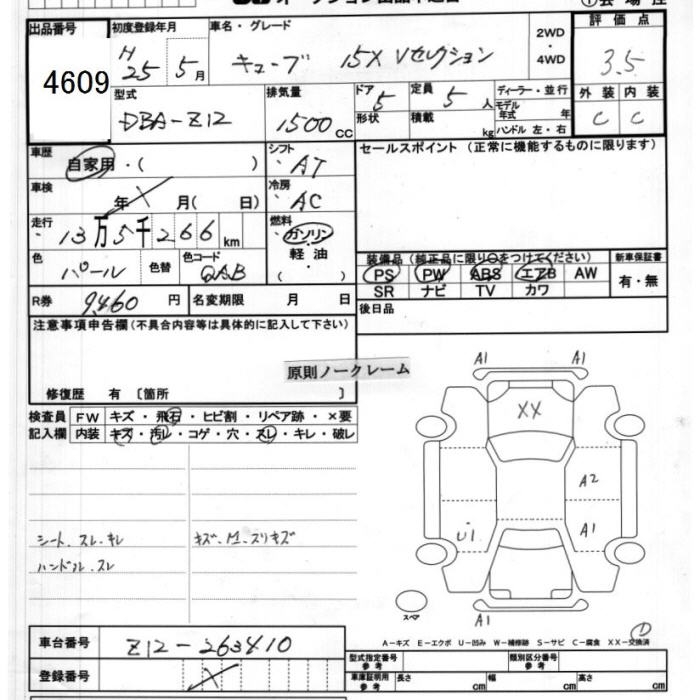 出品番号
4609
初度登録年月
H 25 5 月
車名・グレード
キューブ 15X Vセレクション
2WD
・
4WD
評価点
3.5
型式
DBA-Z12
排気量
1500 CC
ドア 5
形状
定員 5 人
積載 kg
ディーラー・並行
モデル年式 年
ハンドル 左・右
外装 内装
C C
車歴
自家用・( )
シフト
AT
セールスポイント (正常に機能するものに限ります)
車検
年 月( 日)
冷房
AC
走行
13万5千266km
燃料
ガソリン
軽油
( )
色
パール
色替
色コード
QAB
装備品 (純正品に限り○をつけてください)
PS PW ABS エアB AW
SR ナビ TV カワ
新車保証書
有・無
R券 9,460 円
名変期限 月 日
後日品
注意事項申告欄(不具合内容等は具体的に記入して下さい)
原則ノークレーム
修復歴 有 〔箇所 〕
検査員
記入欄
FW キズ・飛石・ヒビ割・リペア跡・×要
内装 キズ・汚レ・コゲ・穴・スレ・キレ・破レ
シート、スレ、キレ
ハンドル、スレ
キズ、M、スリキズ
A1 A1
XX
A2
U1 A1
スペア
A1
A-キズ E-エクボ U-凹み W-補修跡 S-サビ C-腐食 XX-交換済
車台番号
Z12-263410
登録番号
型式指定番号
参考
類別区分番号
参考
車庫証明用
参考
長さ cm 幅 cm 高さ cm